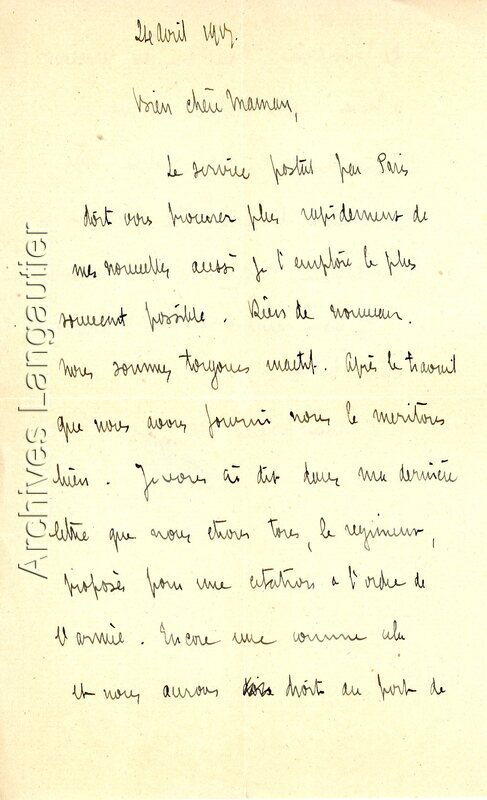 24 avril 1917.
Bien chère Maman,
Le service postal par Paris
doit vous procurer plus rapidement de
mes nouvelles aussi je l'emploie le plus
souvent possible. Rien de nouveau.
Nous sommes toujours inactif. Après le travail
que nous avons fourni nous le meritons
bien. Je vous ai dit dans ma dernière
lettre que nous etions tous, le regiment,
proposés pour une citation a l'ordre de
l'armée. Encore une comme cela
et nous aurons droit au port de
Archives Langautier